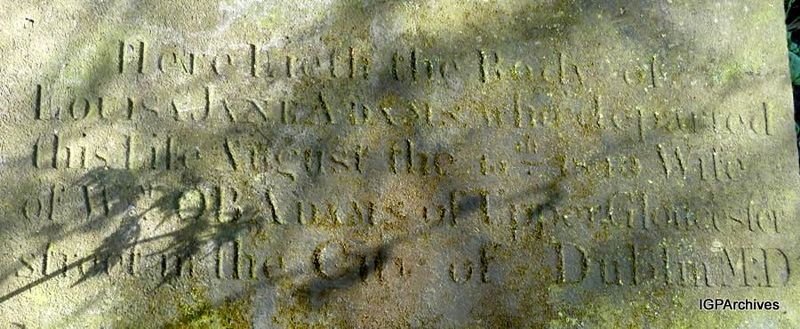 Here lieth the Body of
LOUISA JANE ADAMS who departed
this Life August the th 1843 Wife
of Wm OB ADAMS of Upper Gloucester
street in the City of Dublin M:D
IGPArchives